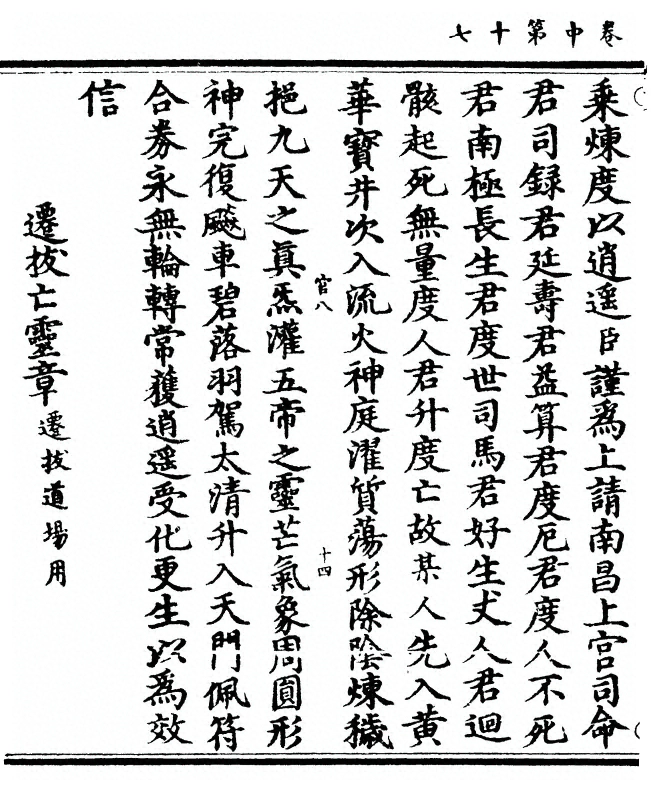 卷中第十七
乘煉度以逍遥臣謹爲上請南昌上宮司命
君司録君延壽君益算君度厄君度人不死
君南極長生君度世司馬君好生丈人君迴
骸起死無量度人君升度亡故某人先入黄
華寶井次入流火神庭濯質蕩形除陰煉穢
官八
十四
挹九天之真炁灌五帝之靈芒氣象周圓形
神完復飈車碧落羽駕太清升入天門佩符
合券永無輪轉常獲逍遥受化更生以爲效
信
遷拔亡靈章遷拔道場用